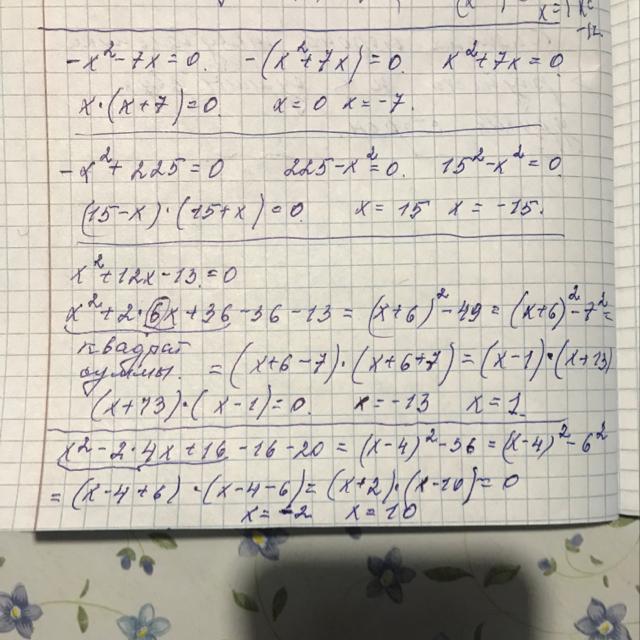 x=1
-x²-7x=0. -(x²+7x)=0. x²+7x=0
x·(x+7)=0. x=0 x=-7.
-x²+225=0 225-x²=0. 15²-x²=0.
(15-x)·(15+x)=0. x=15 x=-15.
x²+12x-13=0
x²+2·6x+36-36-13=(x+6)²-49=(x+6)²-7²=
квадрат суммы. =(x+6-7)·(x+6+7)=(x-1)·(x+13)
(x+13)·(x-1)=0. x=-13 x=1
x²-2·4x+16-16-20=(x-4)²-36=(x-4)²-6²
=(x-4+6)·(x-4-6)=(x+2)·(x-10)=0
x=-2 x=10